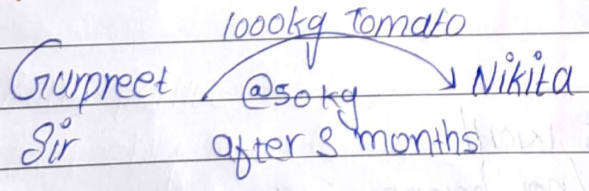 1000kg Tomato
Gurpreet @50 kg Nikita
Sir after 3 months